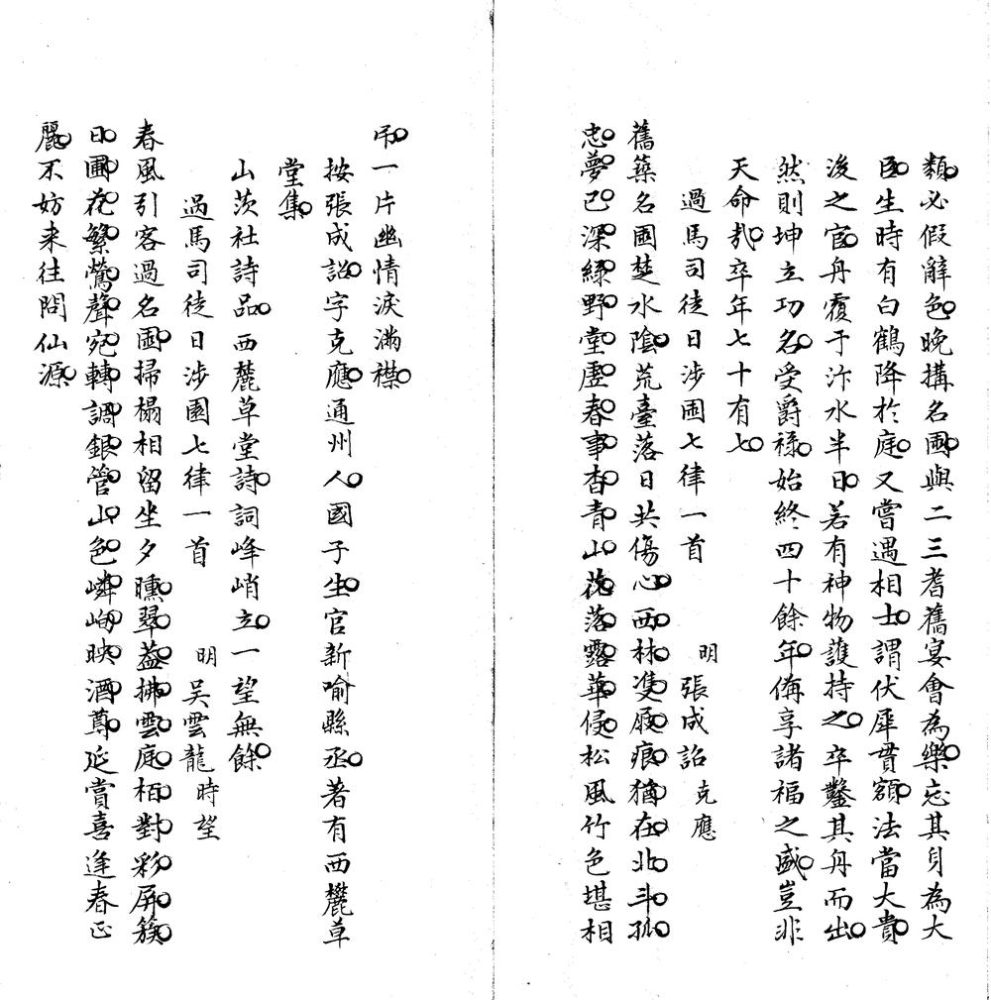 類必假辭色晚搆名園與二三耆舊宴會為樂忘其身為大
臣生時有白鶴降於庭又嘗遇相士謂伏犀貫額法當大貴
後之官舟覆于汴水半日若有神物護持之卒鑿其舟而出
然則坤立功名受爵祿始終四十餘年備享諸福之盛豈非
天命哉卒年七十有七
過馬司徒日涉園七律一首 明 張成詔 克應
舊築名園楚水陰荒臺落日共傷心西林雙屐痕猶在北斗孤
忠夢已深綠野堂虛春事杳青山花落露華侵松風竹色堪相
弔一片幽情淚滿襟
按張成詔字克應通州人國子生官新喻縣丞著有西麓草
堂集
山茨社詩品西麓草堂詩詞峰峭立一望無餘
過馬司徒日涉園七律一首 明 吳雲龍 時望
春風引客過名園掃榻相留坐夕曛翠蓋拂雲庭栢對彩屏簇
日圃花繁鶯聲宛轉調銀管山色嶙峋映酒尊延賞喜逢春正
麗不妨来往問仙源